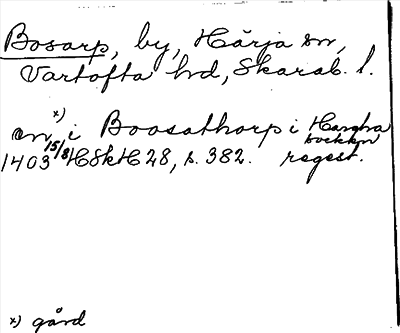 Bosarp, by, Hårja sn,
Vartofta hd, Skarab. l.
en x) i Boosathorp i Hargha
sockkn
1403 15/8 HSkH 28, s. 382. regest.
x) gård